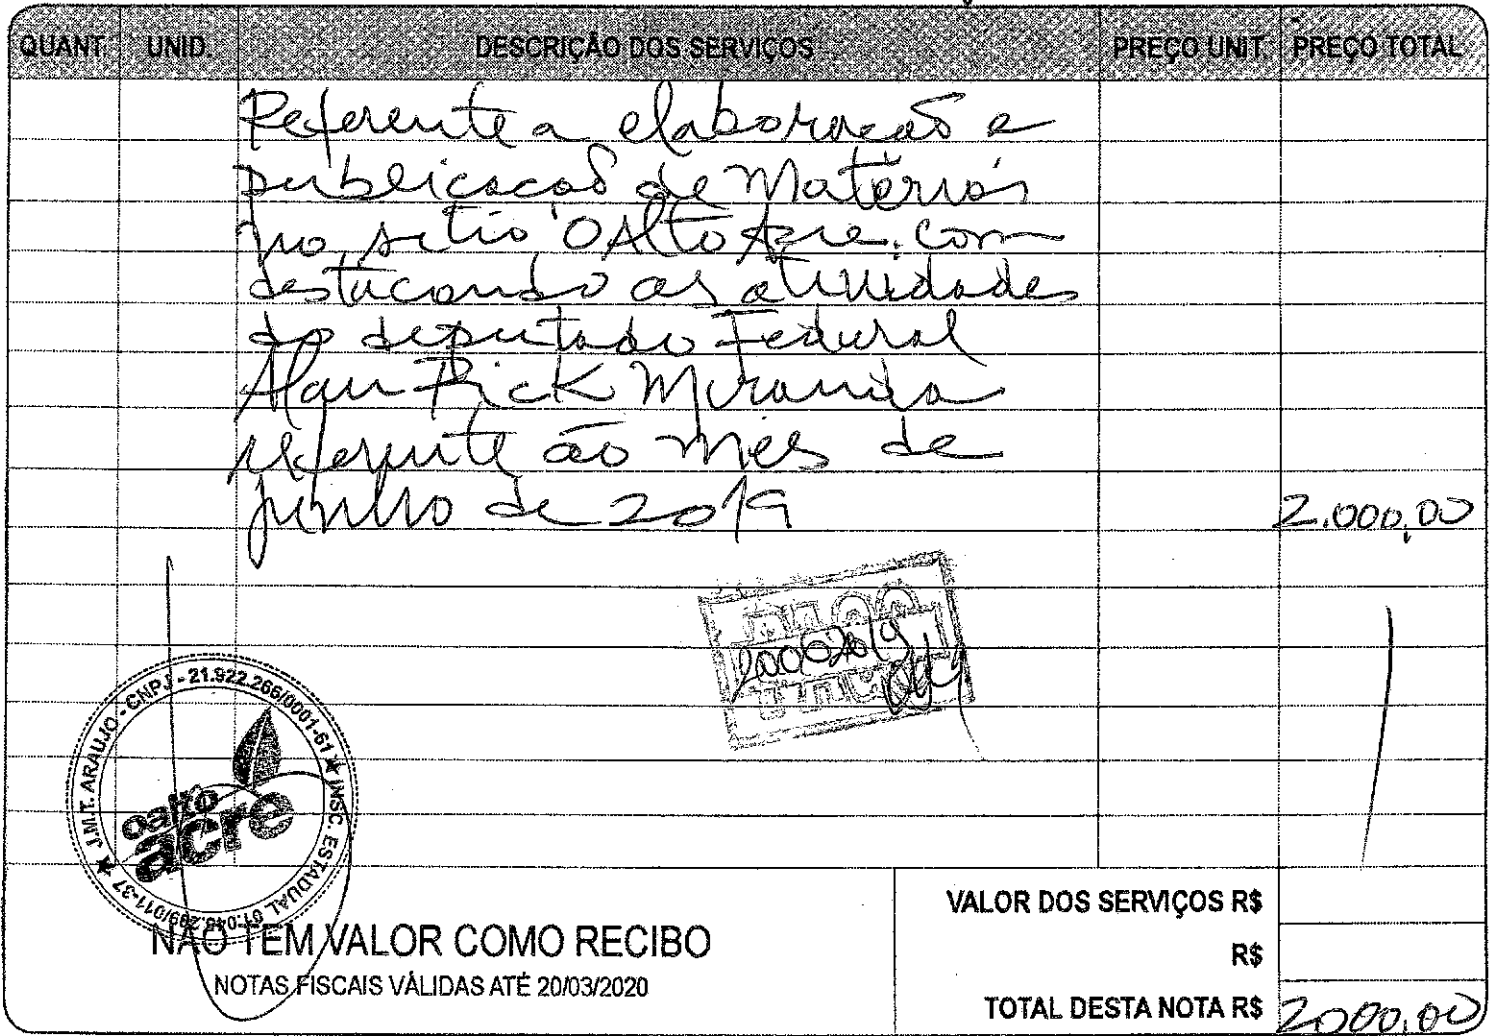 QUANT. UNID. DESCRIÇÃO DOS SERVIÇOS PREÇO UNIT. PREÇO TOTAL
Referente a elaboracaõ e
publicacaõ de Materias
no sitio OAltoAcre.com
destacando as atividades
do deputado Federal
Alan Rick Miranda
referente ão mes de
junho de 2019 2.000,00
J.M.T. ARAUJO - CNPJ - 21.922.266/0001-61 ★ INSC. ESTADUAL 01.045.299/011-37 ★
oalto
acre
NÃO TEM VALOR COMO RECIBO
NOTAS FISCAIS VÁLIDAS ATÉ 20/03/2020
VALOR DOS SERVIÇOS R$
R$
TOTAL DESTA NOTA R$ 2000,00